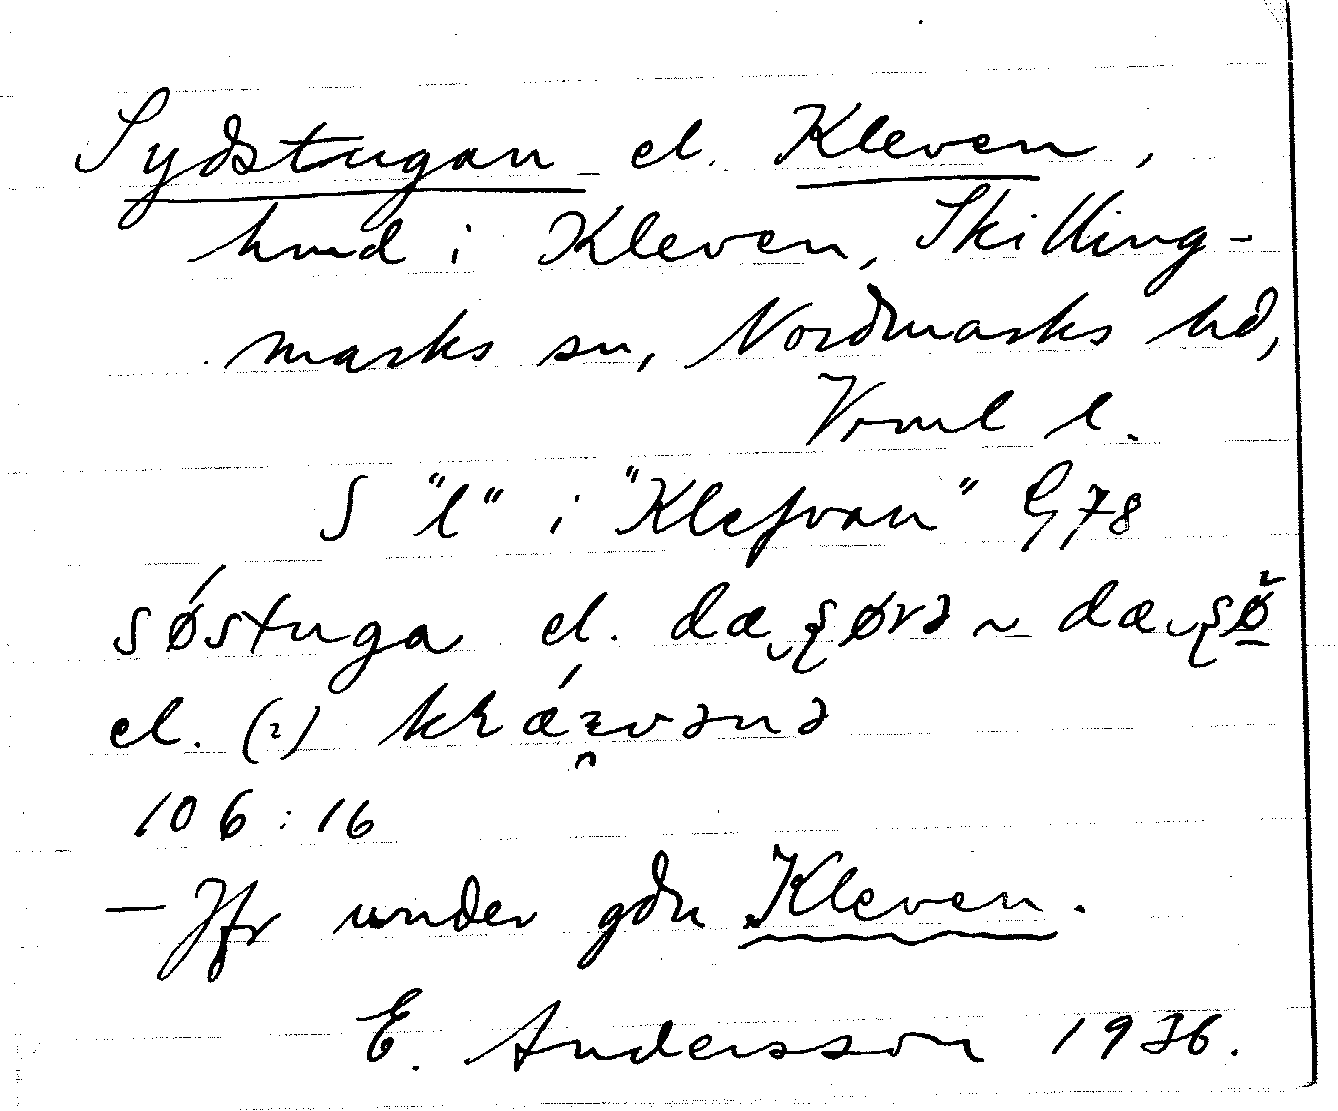 Sydstugan el. Kleven,
hmd i Kleven, Skilling-
marks sn, Nordmarks hd,
Vrml l.
S "l" i "Klefvan" G 78
søstuga el. dæ
el. (?)
106:16
— Jfr under gdn Kleven.
E. Andersson 1936.